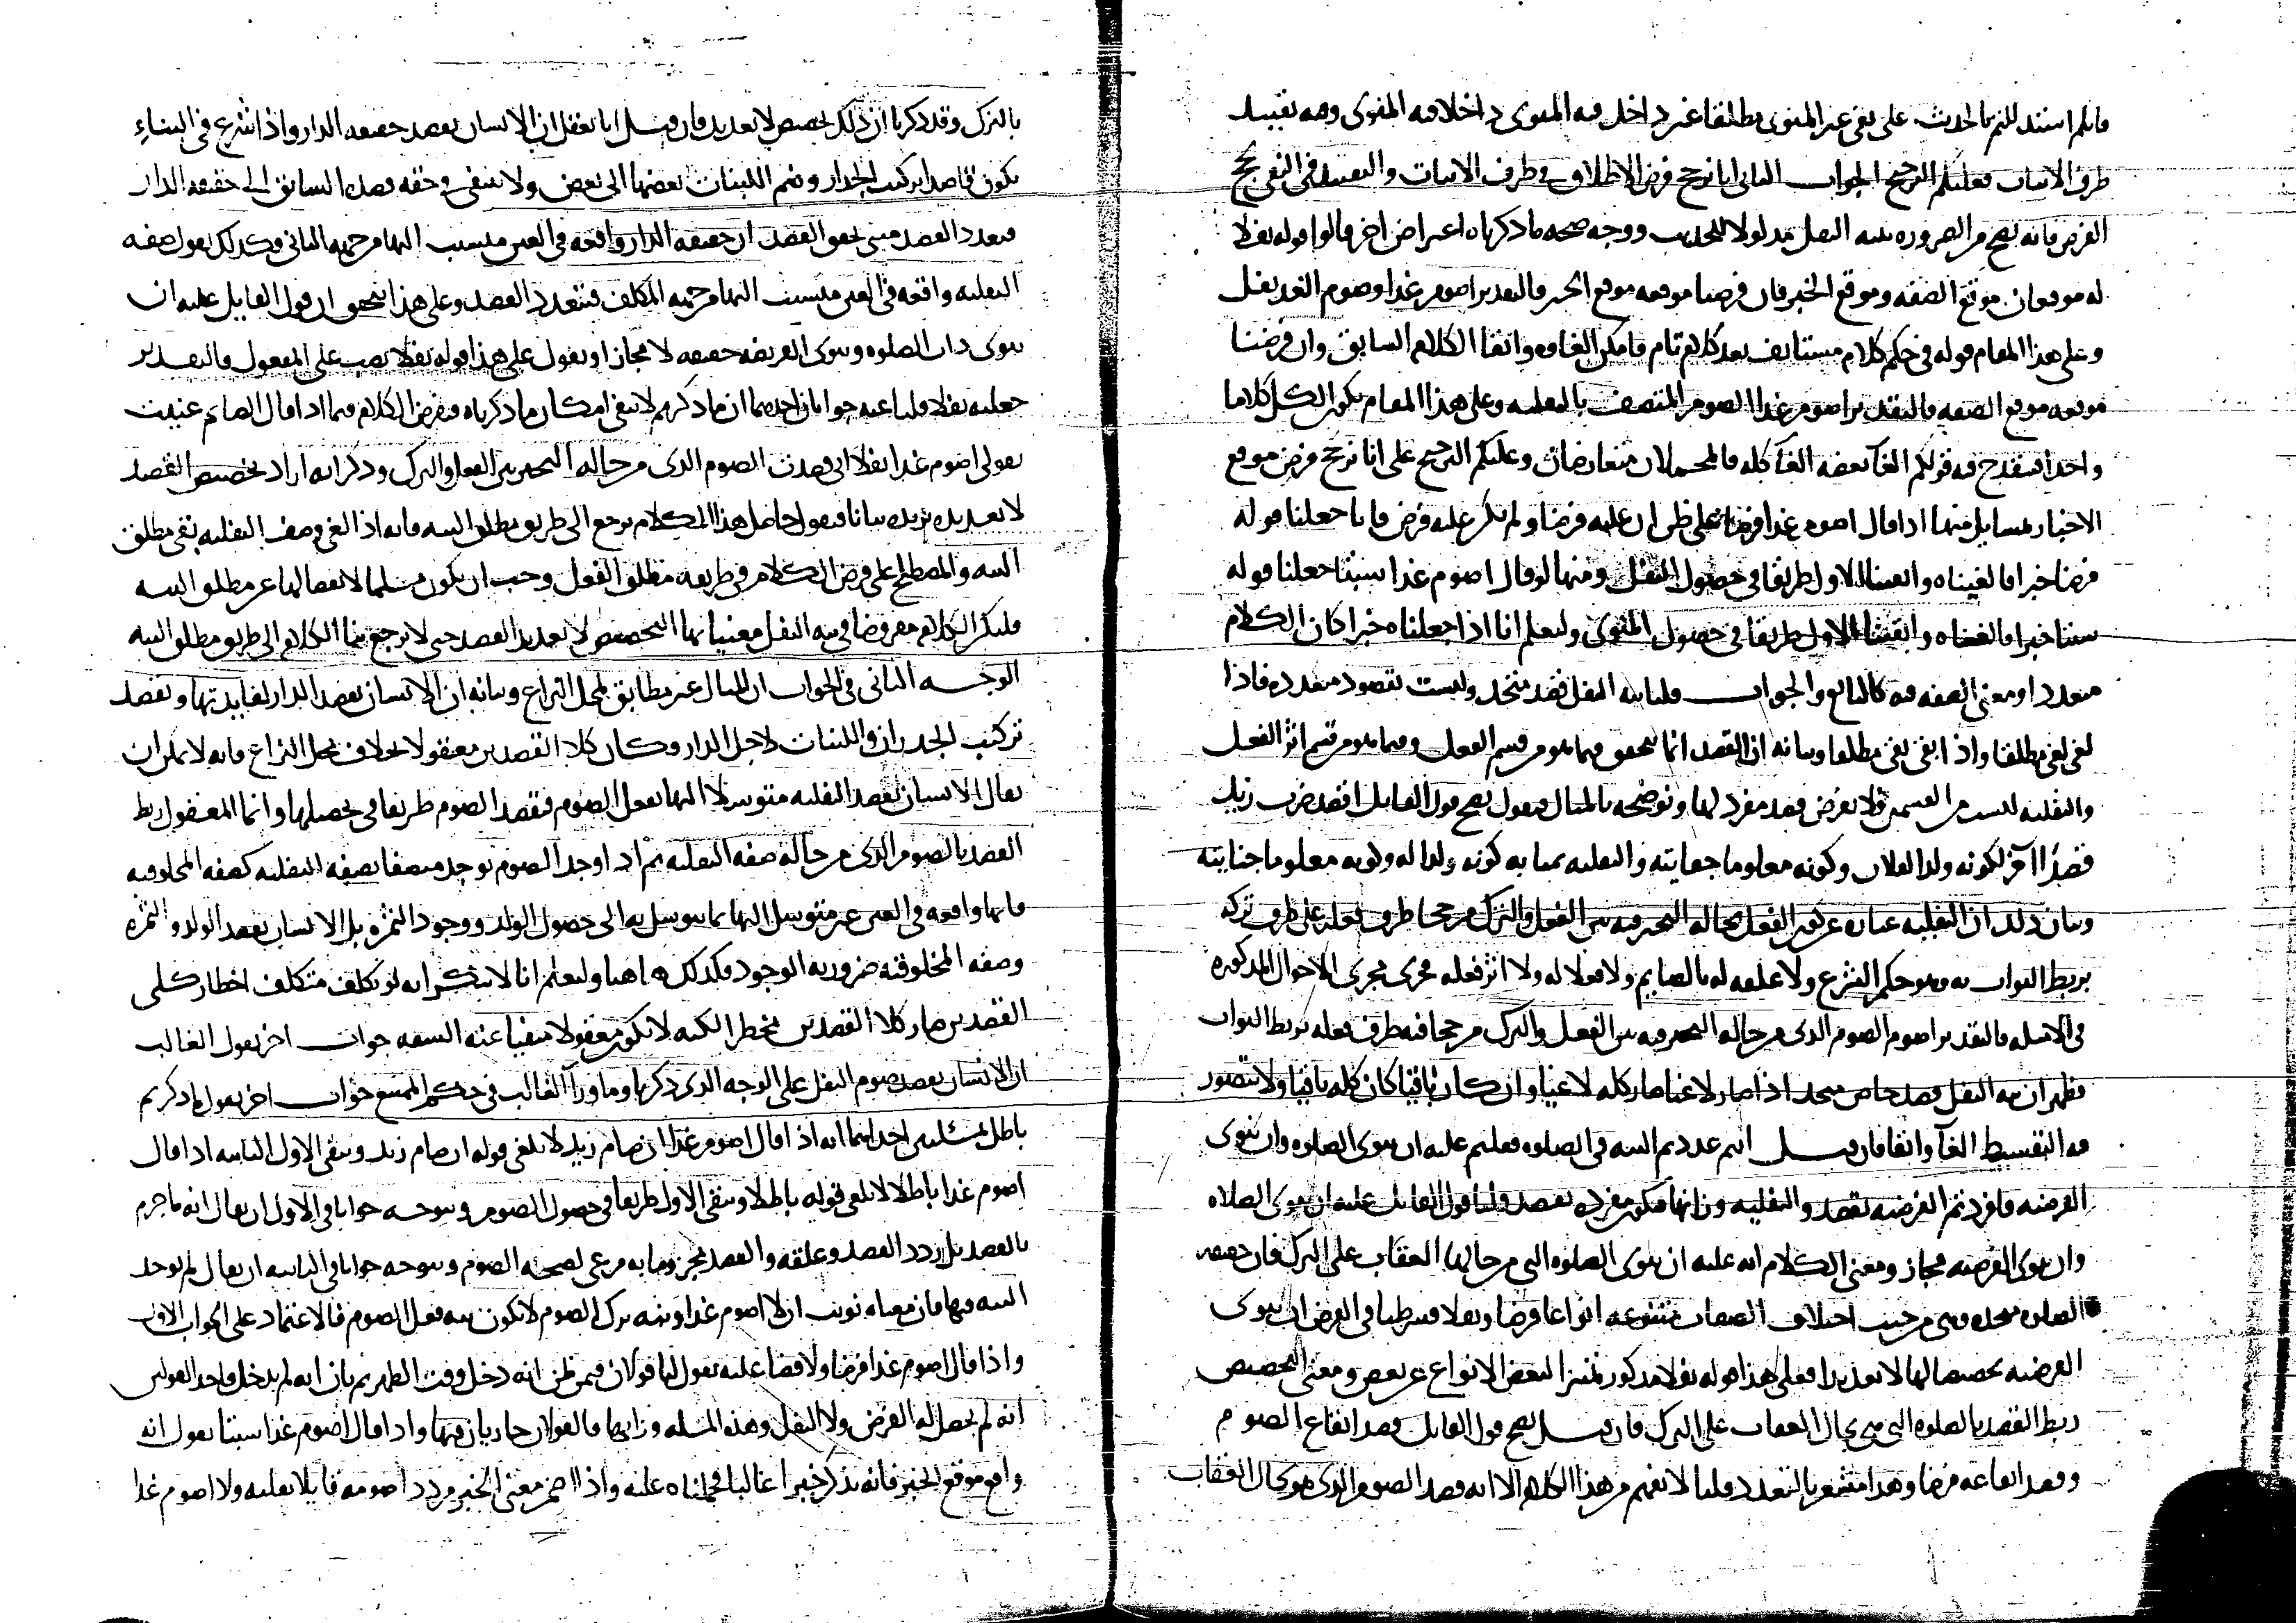 فانكم استندللتم بالحديث على نفي غير المنوي مطلقا غير داخل فيه المنوي داخلا فيه المنوي وفيه تقييد
طرف الاثبات فعليكم الترجيح الجواب الثاني انا نرجح فرض الاطلاق في طرف الاثبات والتقييد في النفي
الفرض فانه يصح من الضرورة نية النفل مدلولا للحديث ووجه صحة ما ذكرناه اعتراض اخر قالوا قوله نفلا
له موقعان موقع الصفة وموقع الخبر فان فرضنا موقعه موقع الخبر فالتقدير اصوم غدا وصوم الغد نفل
وعلى هذا المقام قوله في حكم كلام مستانف بعد كلام تام فامكن الغاوه وابقا الكلام السابق وان فرضنا
موقعه موقع الصفة فالتقدير اصوم غدا الصوم المتصف بالنفلية وعلى هذا المقام يكون الكل كلاما
واحدا فيقدح فيه قولكم الغا بعضه الغا كله فالمحتملان متعارضان وعليكم الترجيح على انا نرجح فرض موقع
الاخبار بمسايل منها اذا قال اصوم غدا فرضا على ظن ان عليه فرضا ولم يكن عليه فرض فانا جعلنا قوله
فرضا خبرا فالغيناه وابقينا الاول طريقا في حصول النفل ومنها لو قال اصوم غدا سبتا جعلنا قوله
سبتا خبرا فالغيناه وابقينا الاول طريقا في حصول المنوي وليعلم انا اذا جعلناه خبرا كان الكلام
متعددا ومعنى الصفة فيه كالتابع والجواب قلنا نية النفل قصد متحد وليست بقصود متعددة فاذا
لغي لغي مطلقا واذا بقي بقي مطلقا وبيانه ان القصد انما يتحقق فيما هو من قسم الفعل وفيما هو من قسم اثر الفعل
والنفلية ليست من القسمين فلا يفرض قصد مفرد لها ونوضحه بالمثال فنقول يصح قول القايل اقصد ضرب زيد
قصدا اخر لكونه ولدا لفلان وكونه معلوما جفايته والنفلية بمثابة كونه ولدا له وكونه معلوما جنايته
وبيان ذلك ان النفلية عبارة عن كون الفعل بحالة التخير فيه بين الفعل والترك مرجحا طرف فعله على طرف تركه
بربط الثواب به وهو حكم الشرع ولا علقة له بالصايم ولا فعلا له ولا اثر فعله فجرى مجرى الاحوال المذكورة
في الامثلة فالتقدير اصوم الصوم الذي من حاله التخير فيه بين الفعل والترك مرجحا فيه طرف فعله بربط الثواب
فظهر ان نية النفل قصد خاص متحد اذا صار لاغيا صار كله لاغيا وان كان باقيا كان كله باقيا ولا يتصور
فيه التقسيط الغا وابقا فان قيل انتم عددتم النية في الصلوه فقلتم عليه ان ينوي الصلوه وان ينوي
الفرضية فافردتم الفرضية بقصد والنفلية وزانها فتكون مفردة بقصد قلنا قول القايل عليه ان ينوي الصلاه
وان ينوي الفرضية مجاز ومعنى الكلام انه عليه ان ينوي الصلوه التي من حالها العقاب على الترك فان حقيقة
الصلوه متحدة وهي من حيث اختلاف الصفات متنوعة انواعا فرضا ونفلا فشرطنا في الفرض ان ينوي
الفرضية تخصيصا لها لا تعديدا فعلى هذا قوله نفلا مذكور تمييزا لبعض الانواع عن بعض ومعنى التخصيص
ربط القصد بالصلوه التي هي بحال العقاب على الترك فان قيل يصح قول القايل قصد ايقاع الصوم
وقصد ايقاعه فرضا وهذا مشعر بالتعدد قلنا لا نفهم من هذا الكلام الا انه قصد الصوم الذي هو بحال العقاب
بالترك وقد ذكرنا ان ذلك تخصيص لا تعديد فان قيل انا نعقل ان الانسان يقصد حقيقة الدار واذا شرع في البناء
يكون قاصدا تركيب الجدار وضم اللبنات بعضها الى بعض ولا ينتفي في حقه قصده السابق الى حقيقة الدار
فتعدد القصد مبني تحقق القصد ان حقيقة الدار واقعة في الغير متسبب اليها من جهة الباني وكذلك نقول صفة
النفلية واقعة في الغير متسبب اليها من جهة المكلف فتعدد القصد وعلى هذا يتحقق ان قول القايل عليه ان
ينوي ذات الصلوه وينوي الفرضية حقيقة لا مجاز او نقول على هذا قوله نفلا نصب على المفعول والتقدير
جعلته نفلا قلنا عنه جوابان احدهما ان ما ذكرتم لا ينفي امكان ما ذكرناه فنفرض الكلام فيما اذا قال الصايم عنيت
بقولي اصوم غدا نفلا اني قصدت الصوم الذي من حاله التخير بين الفعل والترك وذكر انه اراد تخصيص القصد
لا تعديده نزيده بيانا فنقول حاصل هذا الكلام يرجع الى طريق مطلق النية فانه اذا الغي وصف النفلية بقي مطلق
النية والمصطلح على فرض الكلام في طريقة مطلق الفعل وجب ان يكون مسلما لانفصالها عن مطلق النية
فليكن الكلام مفروضا في نية النفل معنيا بها التخصيص لا تعديد القصد حتى لا يرجع بنا الكلام الى طريق مطلق النية
الوجه الثاني في الجواب ان المثال غير مطابق لمحل النزاع وبيانه ان الانسان يقصد الدار لفايدتها ويقصد
تركيب الجدران واللبنات لاجل الدار وكان كلا القصدين معقولا بخلاف محل النزاع فانه لا يمكن ان
يقال الانسان يقصد النفلية متوسلا اليها بفعل الصوم فيقصد الصوم طريقا في تحصيلها وانما المعقول ربط
القصد بالصوم الذي من حاله صفة النفلية ثم اذا وجد الصوم يوجد متصفا بصفة النفلية كصفة المخلوقية
فانها واقعة في الغير غير متوسل اليها بما يتوسل به الى حصول الولد ووجود الثمره بل الانسان يقصد الولد والثمره
وصفة المخلوقية ضرورية الوجود فكذلك هاهنا وليعلم انا لا ننكر انه لو تكلف متكلف اخطار كلي
القصدين صار كلا القصدين مخطرا لكنه لا يكون معقولا منفيا عنه السفه جواب اخر نقول الغالب
ان الانسان يقصد بصوم النفل على الوجه الذي ذكرنا وما ورا الغالب في حكم الممتنع جواب اخر نقول ما ذكرتم
باطل بمسئلتين احداهما انه اذا قال اصوم غدا ان صام زيد لا يلغى قوله ان صام زيد ويبقى الاول الثانية اذا قال
اصوم غدا باطلا لا يلغى قوله باطلا ويبقى الاول طريقا في حصول الصوم ويتوجه جوابا في الاول ان يقال انه ما جزم
بالقصد بل ردد القصد وعلقه والقصد مجزوما به مرعي لصحة الصوم ويتوجه جوابا في الثانية ان يقال لم توجد
النية فيها فان معناه نويت ان لا اصوم غدا ونية ترك الصوم لا تكون نية فعل الصوم فالاعتماد على الجواب الاول
واذا قال اصوم غدا فرضا ولا قضا عليه نقول لنا قولان فيمن ظن انه دخل وقت الظهر ثم بان انه لم يدخل واحد القولين
انه لم يحصل له الفرض ولا النفل وهذه المسله وزانها فالقولان جاريان فيها واذا قال اصوم غدا سبتا نقول انه
واقع موقع الخبر فانه يذكر خبرا غالبا فحملناه عليه واذا اضمر معنى الخبر مردد اصومه قايلا نفليه ولا اصوم غدا